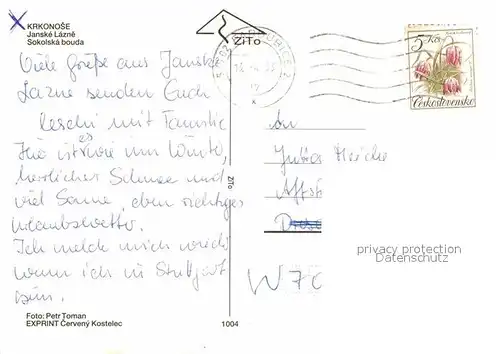 KRKONOŠE
Janské Lázně
Sokolská bouda
ZiTo
5 Kčs
Československo
Viele Grüße aus Janské
Lazne senden Euch
mit Familie
Hier ist es wie im Winter,
herrlicher Schnee und
viel Sonne, eben richtiges
Urlaubswetter.
Ich melde mich wieder
wenn ich in Stuttgart
bin.
An
W 70
privacy protection
Datenschutz
ZiTo
Foto: Petr Toman
EXPRINT Červený Kostelec
1004